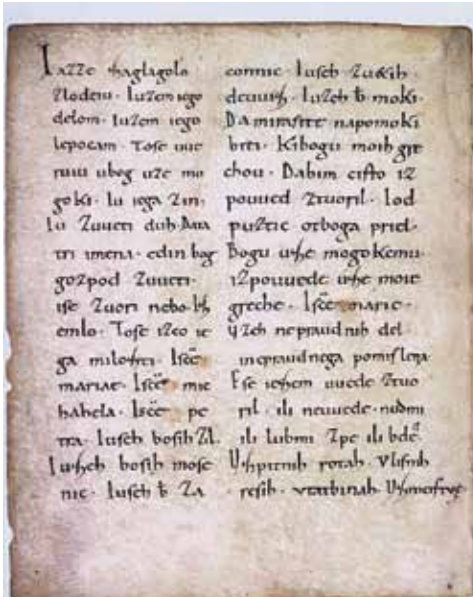 Iazze zaglagolo
zlodeiu. Iuzem iego
delom. Iuzem iego
lepocam. Tose uue
ruiu ubog uze mo
goki. Iu iega Zin.
Iu Zuueti duh. Data
tri imena. edin bog
gozpod Zuueti.
ise Zuori nebo. Iz
emlo. Tose izco ie
ga milozti. Isc̄e
mariae. Isc̄e mic
hahela. Isc̄e pe
tra. Iuseh bosih Zl.
Iuzeh bosih mose
nic. Iuseh b̄ Za
connic. Iuseh Zuetih
deuuiz. Iuzeh b̄ moki.
Da mirasite napomoki
biti. Kibogu moih gre
chou. Dabim cisto iz
pouued ztuoril. Iod
puztic otboga priel.
Bogu uze mogokemu.
izpouuede uze moie
greche. Isc̄e marie.
Uzeh nepraudnih del.
inepraudnega pomislena.
Ese iezem uuede Ztuo
ril. ili neuuede. nudmi
ili lubmi Zpe ili bde.
Uzpitnih rotah. Vlisnih
resih. vtatbinah.